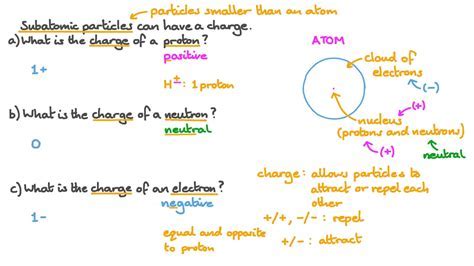 particles smaller than an atom
Subatomic particles can have a charge.
a) What is the charge of a proton?
positive
1+
H±: 1 proton
b) What is the charge of a neutron?
neutral
0
c) What is the charge of an electron?
negative
1-
equal and opposite
to proton
ATOM
cloud of
electrons
(-)
(+)
nucleus
(protons and neutrons)
(+)
neutral
charge: allows particles to
attract or repel each
other
+/+, -/- : repel
+/- : attract